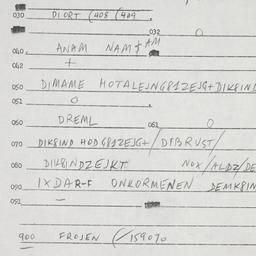 030 DIORT (408 (409
032 O
040 ANAM NAM+AM
042 +
050 DIMAME HOTALEJNG81ZEJG+DIK8IND
051 O
060 DREML 061 O
070 DIK8IND HOD G81ZEJG+/DFBRUST/
080 DIK8INDZEJKT NOX/ALDZ/DE
090 IXDAR-F ONKORMENEN DEMK8IN
091 –
900 FROJEN (/159070